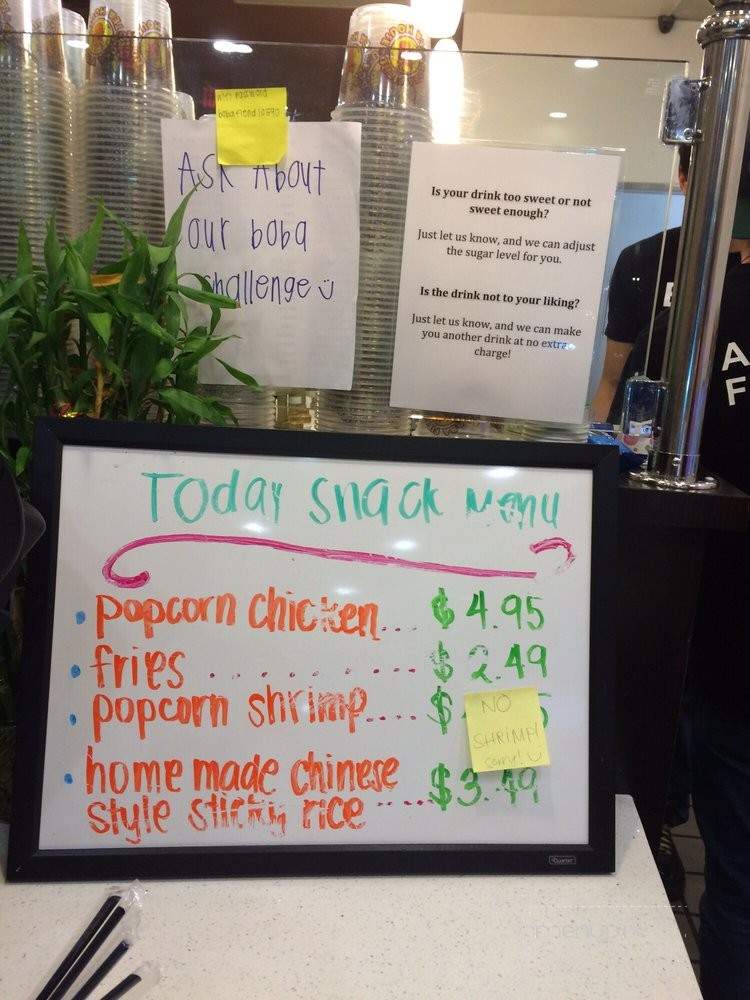 ASK About
our boba
challenge
Is your drink too sweet or not
sweet enough?
Just let us know, and we can adjust
the sugar level for you.
Is the drink not to your liking?
Just let us know, and we can make
you another drink at no extra
charge!
Today snack menu
• popcorn chicken.... $4.95
• fries ......... $2.49
• popcorn shrimp.... $ 5
NO
SHRIMP!
sorry!
• home made chinese
style sticky rice ..... $3.49
Quartet